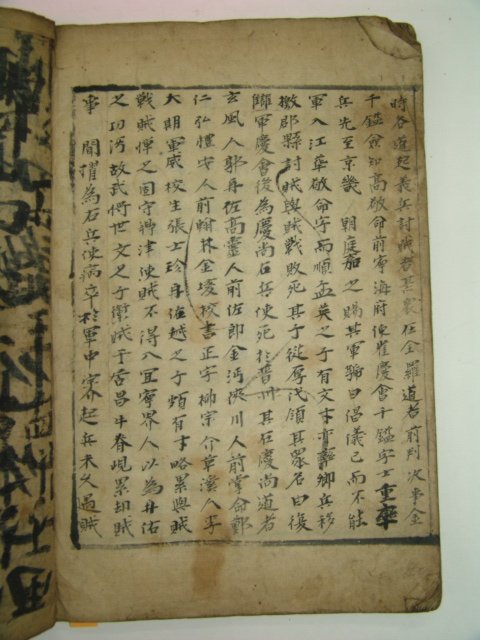 時各道起義兵討賊者甚衆在全羅道者前判決事金
千鎰僉知高敬命前寧海府使崔慶會千鎰字士重率
兵先至京畿 朝庭加之賜其軍號曰倡儀已而不能
軍入江華敬命字而順孟英之子有文才亦鄕兵移
檄郡縣討賊與賊戰敗死其子從厚代領其衆名曰復
讎軍慶會後爲慶尙右兵使死於晋州其在慶尙道者
玄風人郭再佐高靈人前佐郎金沔陜川人前掌令鄭
仁弘禮安人前翰林金垓校書正字柳宗介草溪人李
大期軍威校生張士珍再佐越之子頗有才略累與賊
戰賊憚之固守鼎津使賊不得入宜寧界人以為再佑
之功沔故武將世文之子禦賊于居昌牛脊峴累却賊
事 間擢為右兵使病卒於軍中 宗介起兵未久遇賊